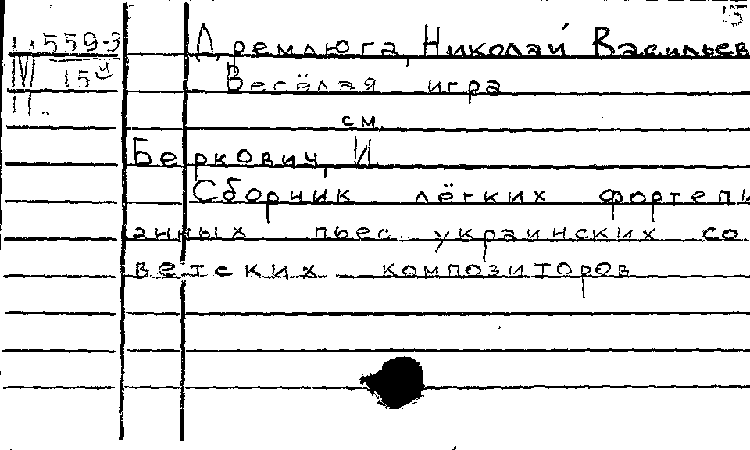 15
559-3
IV 15
Дремлюга, Николай Васильев
Весёлая игра
см.
Беркович, И
Сборник лёгких фортепи
анных пьес украинских со
ветских композиторов